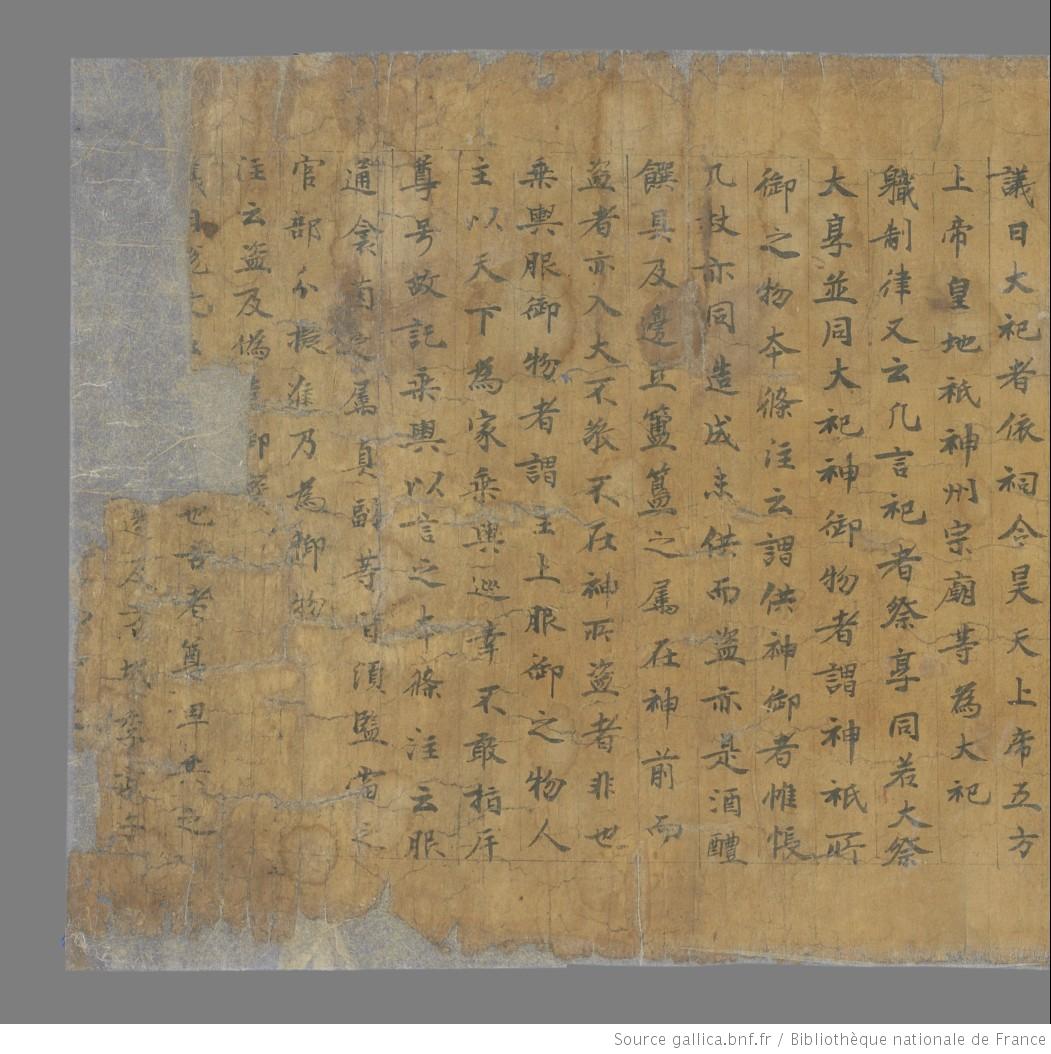 議曰大祀者依祠令昊天上帝五方
上帝皇地祇神州宗廟等為大祀
職制律又云凡言祀者祭享同若大祭
大享並同大祀神御物者謂神祇所
御之物本條注云謂供神御者帷帳
几杖亦同造成未供而盜亦是酒醴
饌具及籩豆簠簋之属在神前而
盜者亦入大不敬不在神所盜者非也
乗輿服御物者謂主上服御之物人
主以天下為家乗輿巡幸不敢指斥
尊号故記乗輿以言之本條注云服
通衾茵之属真副等皆須監當之
官部分擬進乃為御物
注云盜及偽造御寳
議曰 也古者尊卑共之
Source gallica.bnf.fr / Bibliothèque nationale de France